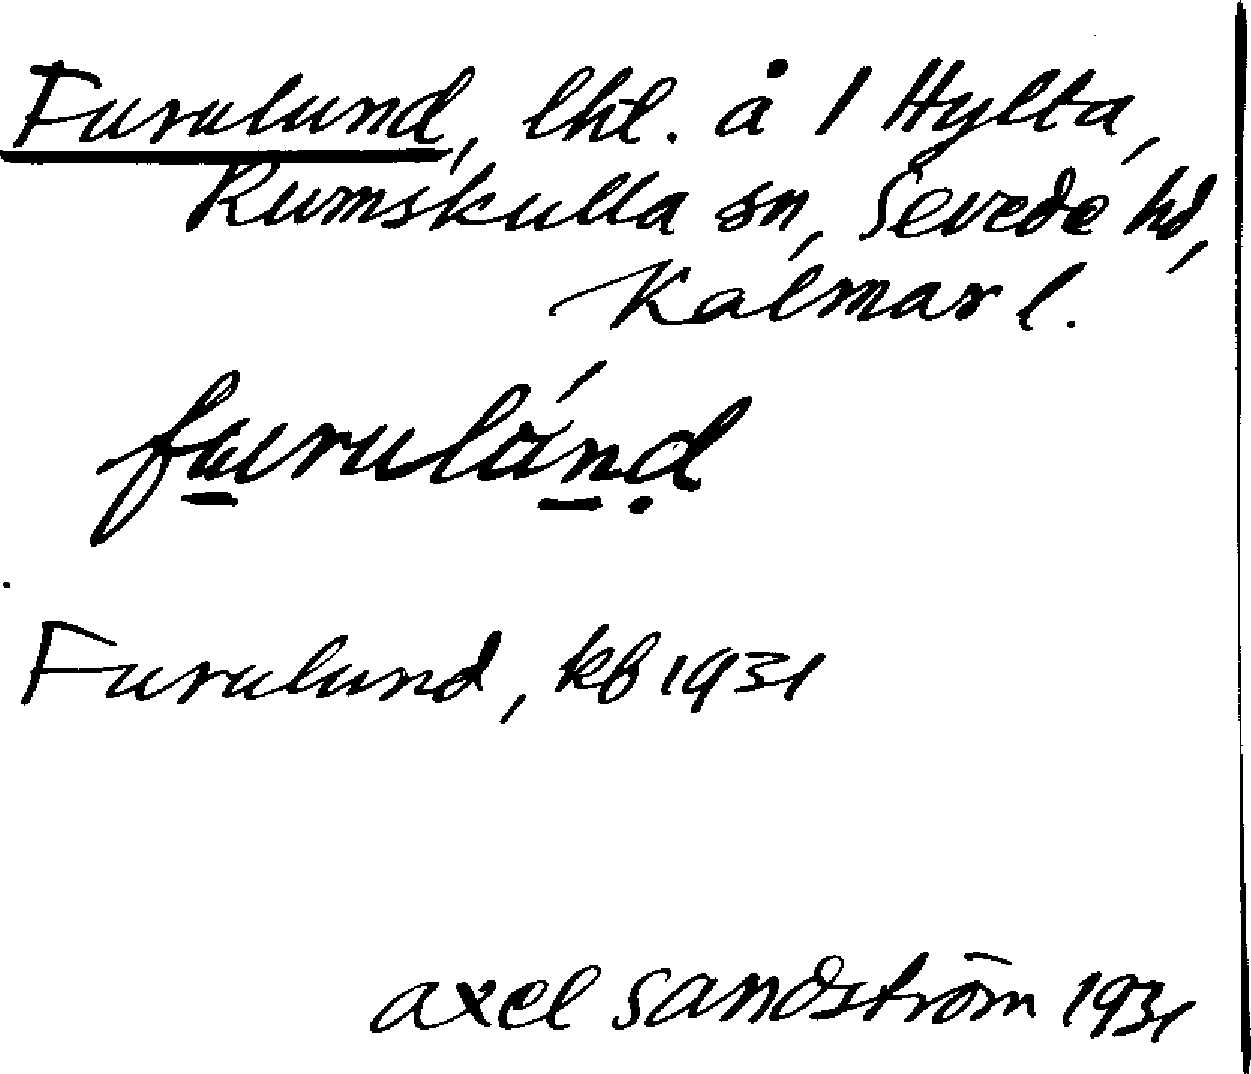 Furulund, lht. å 1 Hylta,
Rumskulla sn, Sevede hd,
Kalmar l.
furulánd
Furulund, kb 1931
axel sandström 1931